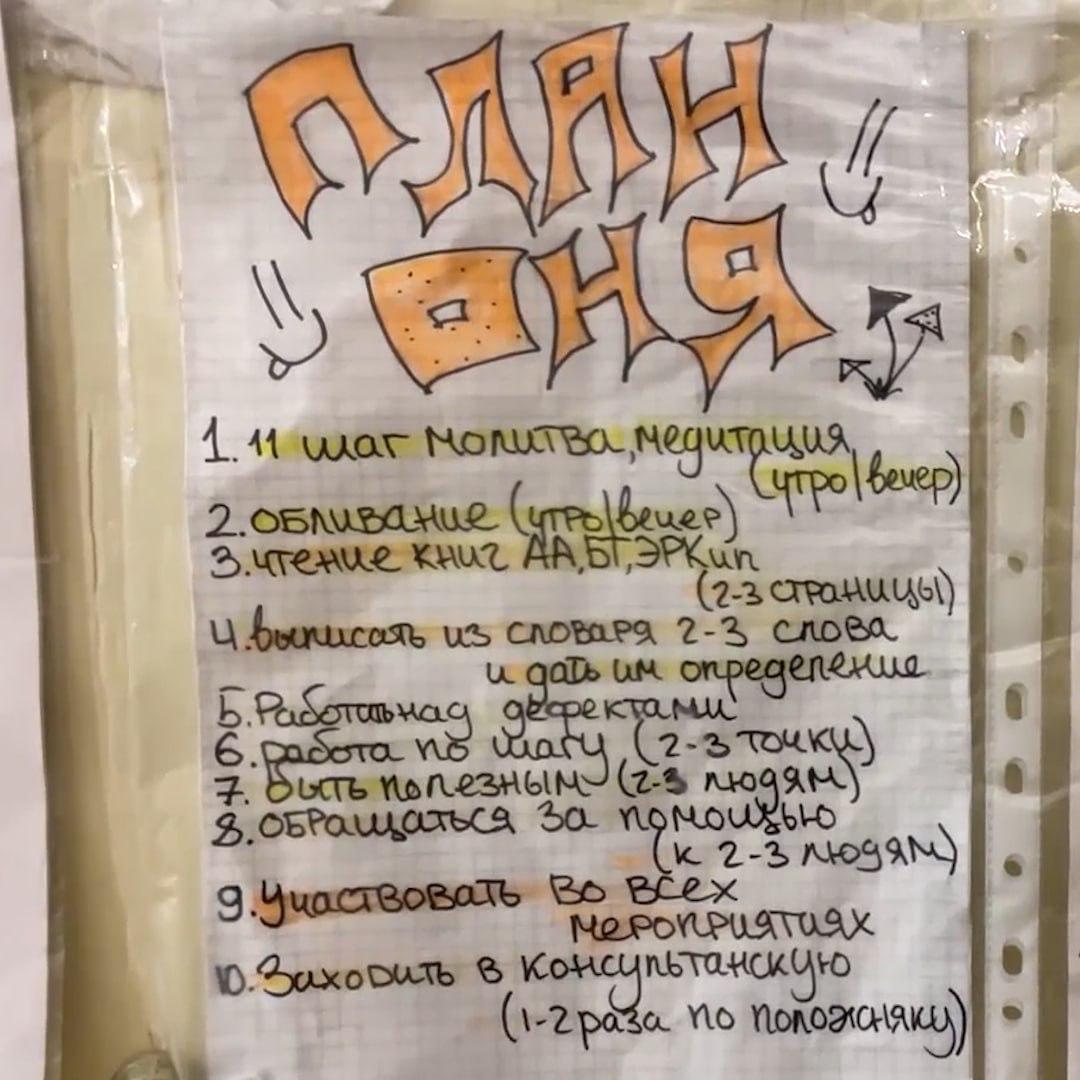 ПЛАН
ДНЯ
1. 11 шаг молитва, медитация
(утро/вечер)
2. Обливание (утро/вечер)
3. чтение книг АА, БГ, ЭРКип
(2-3 страницы)
4. выписать из словаря 2-3 слова
и дать им определение
5. Работать над дефектами
6. работа по шагу (2-3 точки)
7. быть полезным (2-3 людям)
8. обращаться за помощью
(к 2-3 людям)
9. Участвовать во всех
мероприятиях
10. Заходить в консультанскую
(1-2 раза по положняку)